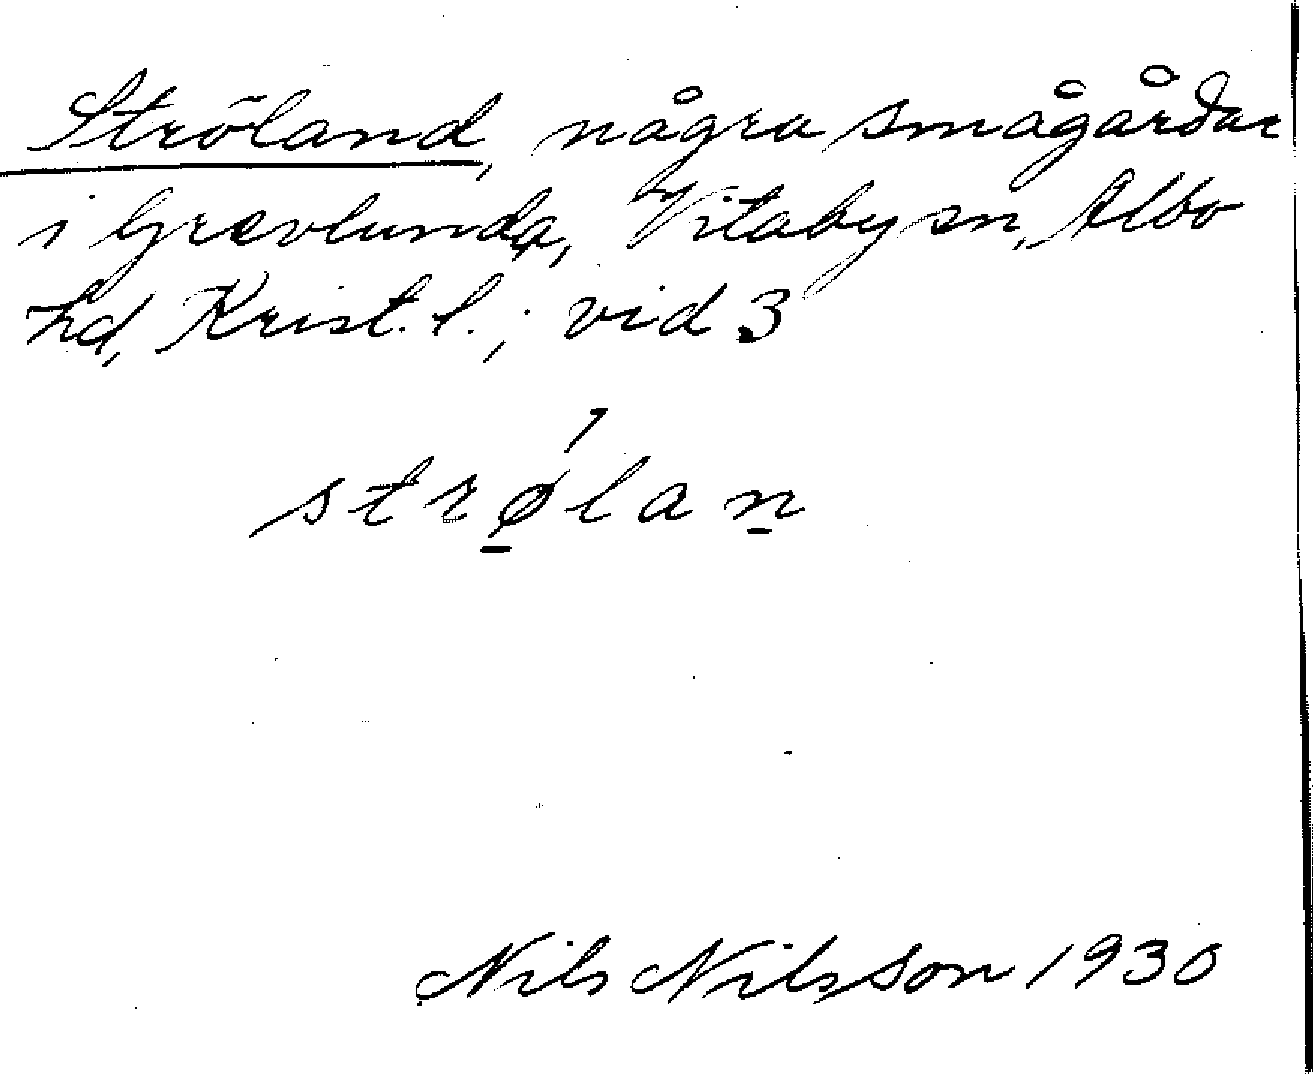 Ströland, några smågårdar
i Grevlunda, Vitaby sn, Albo
hd, Krist. l.; vid 3
strølan
Nils Nilsson 1930